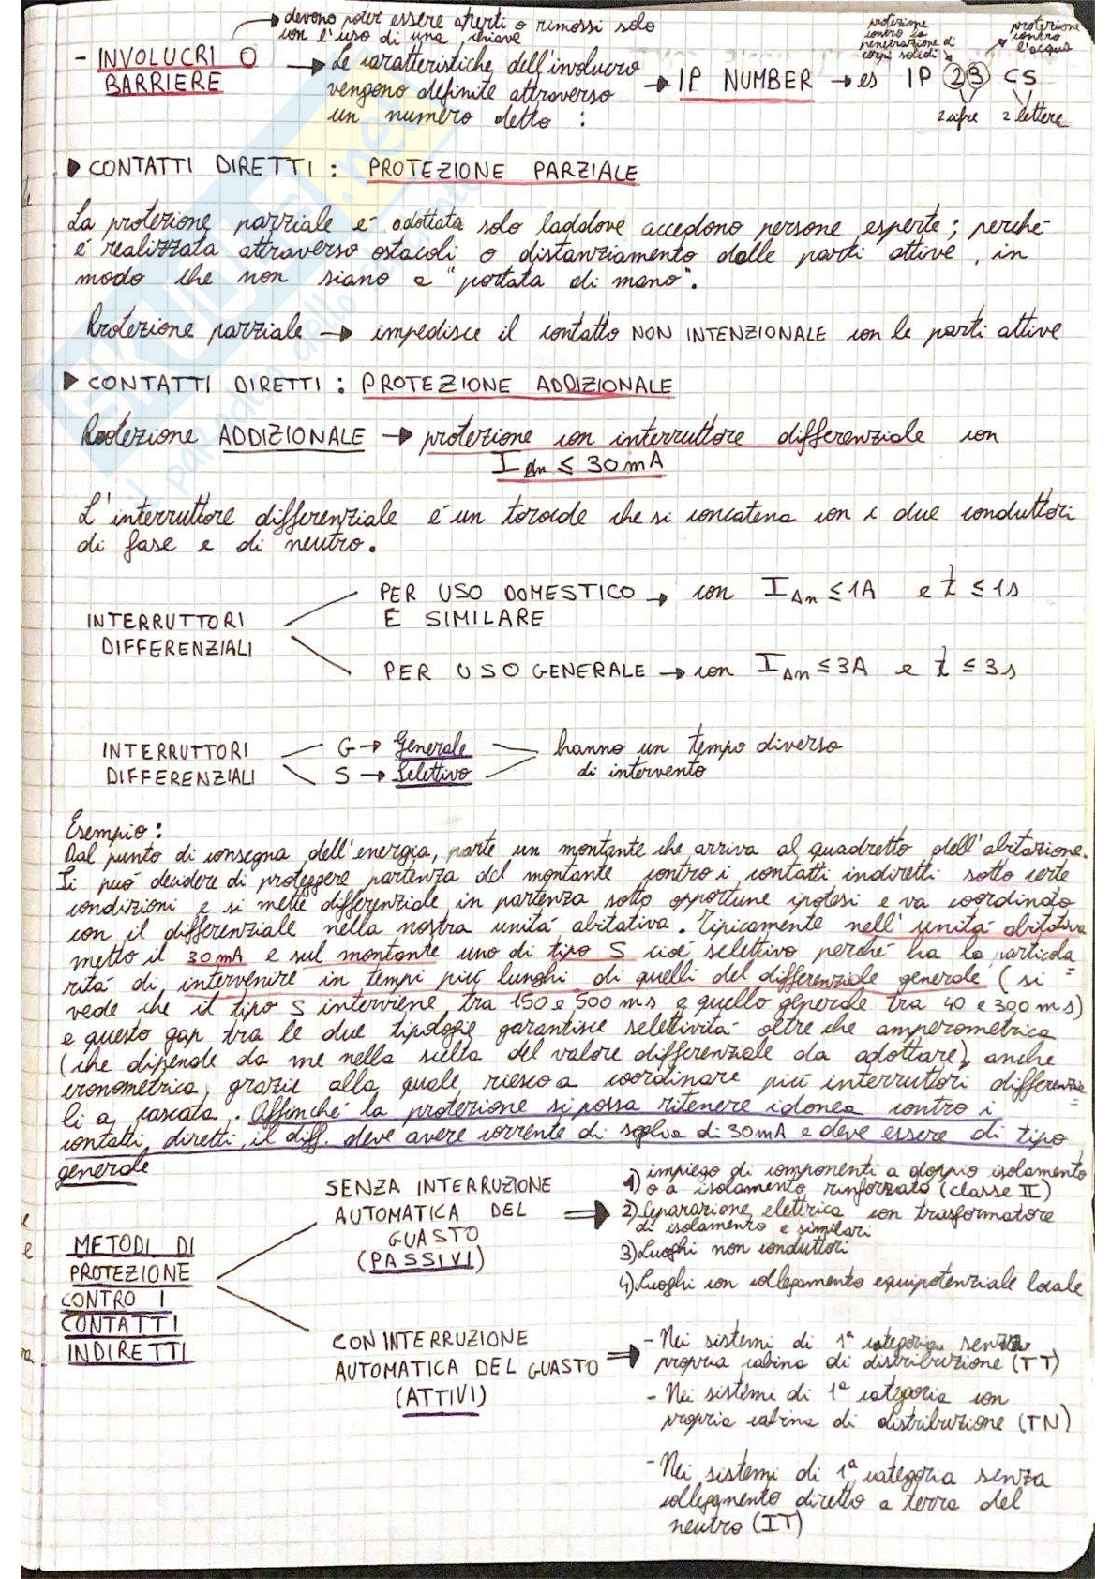 devono poter essere aperti o rimossi solo
con l'uso di una chiave
- INVOLUCRI O
BARRIERE
Le caratteristiche dell'involucro
vengono definite attraverso
un numero detto :
IP NUMBER → es IP 23 CS
protezione
contro la
penetrazione di
corpi solidi
protezione
contro
l'acqua
2 cifre 2 lettere
▶ CONTATTI DIRETTI : PROTEZIONE PARZIALE
La protezione parziale é adottata solo laddove accedono persone esperte ; perché
é realizzata attraverso ostacoli o distanziamento dalle parti attive , in
modo che non siano a "portata di mano".
Protezione parziale → impedisce il contatto NON INTENZIONALE con le parti attive
▶ CONTATTI DIRETTI : PROTEZIONE ADDIZIONALE
Protezione ADDIZIONALE → protezione con interruttore differenziale con
I Δn ≤ 30 mA
L'interruttore differenziale é un toroide che si concatena con i due conduttori
di fase e di neutro.
INTERRUTTORI
DIFFERENZIALI
PER USO DOMESTICO → con I Δn ≤ 1A e t ≤ 1s
E SIMILARE
PER USO GENERALE → con I Δn ≤ 3A e t ≤ 3s
INTERRUTTORI
DIFFERENZIALI
G → Generale
S → Selettivo
hanno un tempo diverso
di intervento
Esempio :
Dal punto di consegna dell'energia, parte un montante che arriva al quadretto dell'abitazione.
Si puó decidere di proteggere partenza del montante contro i contatti indiretti sotto certe
condizioni e si mette differenziale in partenza sotto opportune ipotesi e va coordinato
con il differenziale nella nostra unità abitativa. Tipicamente nell'unitá abitativa
metto il 30 mA e sul montante uno di tipo S cioé selettivo perché ha la particola
ritá di intervenire in tempi piú lunghi di quelli del differenziale generale (si
vede che il tipo S interviene tra 150 e 500 ms e quello generale tra 40 e 300 ms)
e questo gap tra le due tipologie garantisce selettivitá oltre che amperometrica
(che dipende da me nella scelta del valore differenziale da adottare) anche
cronometrica, grazie alla quale riesco a coordinare piú interruttori differenzia
li a cascata. Affinché la protezione si possa ritenere idonea contro i
contatti diretti, il diff. deve avere corrente di soglia di 30mA e deve essere di tipo
generale
METODI DI
PROTEZIONE
CONTRO I
CONTATTI
INDIRETTI
SENZA INTERRUZIONE
AUTOMATICA DEL
GUASTO
(PASSIVI)
1) impiego di componenti a doppio isolamento
o a isolamento rinforzato (classe II)
2) Separazione elettrica con trasformatore
di isolamento e similari
3) Luoghi non conduttori
4) Luoghi con collegamento equipotenziale locale
CON INTERRUZIONE
AUTOMATICA DEL GUASTO
(ATTIVI)
- Nei sistemi di 1ª categoria senza
propria cabina di distribuzione (TT)
- Nei sistemi di 1ª categoria con
propria cabina di distribuzione (TN)
- Nei sistemi di 1ª categoria senza
collegamento diretto a terra del
neutro (IT)